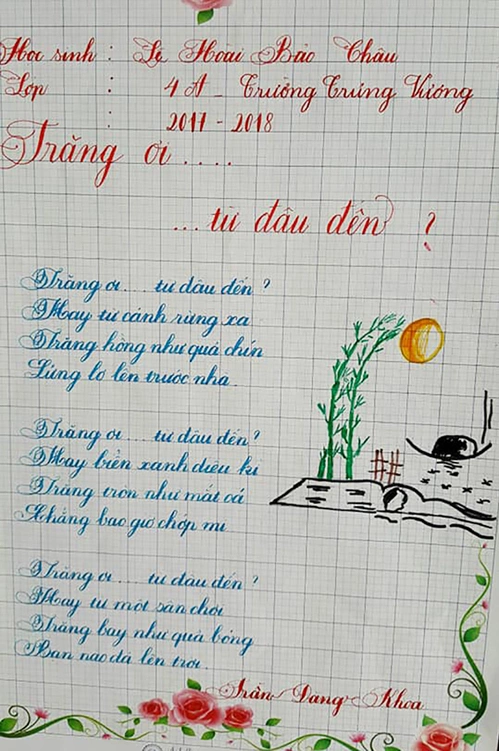 Học sinh : Lê Hoài Bảo Châu
Lớp : 4A - Trường Trưng Vương
: 2017 - 2018
Trăng ơi ....
... từ đâu đến ?
Trăng ơi .... từ đâu đến ?
Hay từ cánh rừng xa
Trăng hồng như quả chín
Lửng lơ lên trước nhà
Trăng ơi .... từ đâu đến ?
Hay biển xanh diệu kì
Trăng tròn như mắt cá
Chẳng bao giờ chớp mi
Trăng ơi .... từ đâu đến ?
Hay từ một sân chơi
Trăng bay như quả bóng
Bạn nào đá lên trời
Trần Đăng Khoa